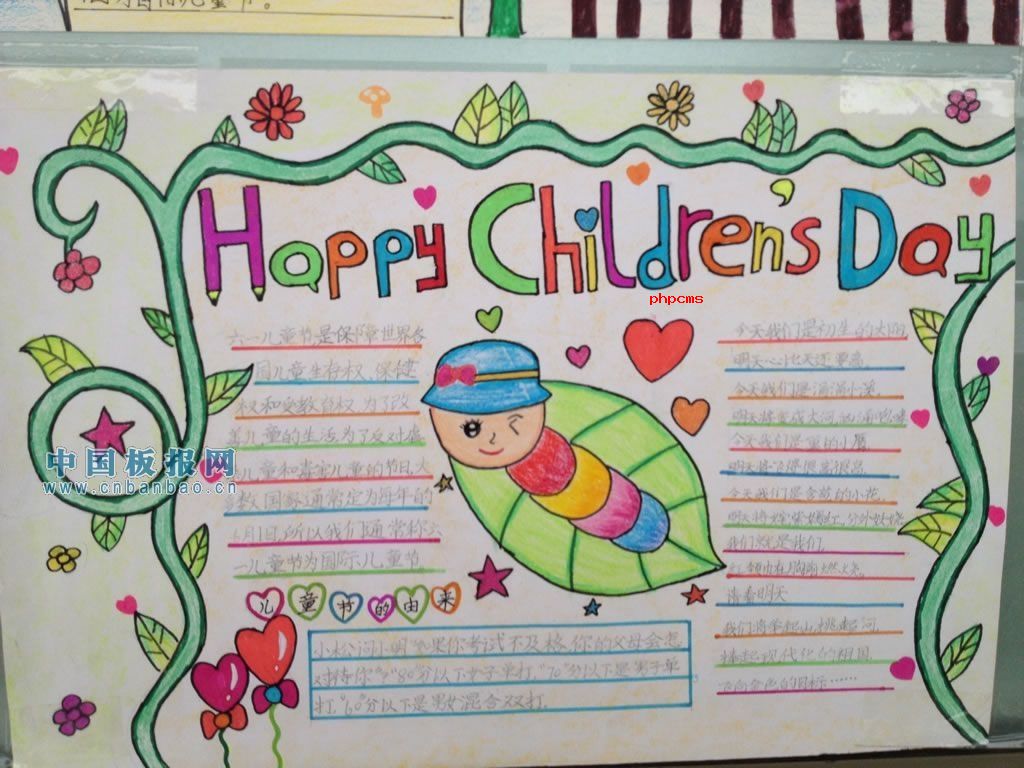 Happy Children's Day
phpcms
六一儿童节是保障世界各
国儿童生存权、保健
权和受教育权,为了改
善儿童的生活,为了反对虐
杀儿童和毒害儿童的节日,大
多数国家通常定为每年的
6月1日,所以我们通常称六
一儿童节为国际儿童节.
中国板报网
www.cnbanbao.cn
儿童节的由来
小松问小明"如果你考试不及格,你的父母会怎
对待你"?"80"分以下女子单打,"70"分以下是男子单
打,"60"分以下是男女混合双打.
今天我们是初生的太阳
明天心比天还要高.
今天我们是涓涓小溪.
明天将变成大河
今天我们是
明天将飞得很高很高.
今天我们是含苞的小花.
明天将
我们就是我们.
红领巾在胸前燃烧.
请看明天
我们将举起山,挑起河.
现代化的祖国.
飞向金色的目标……